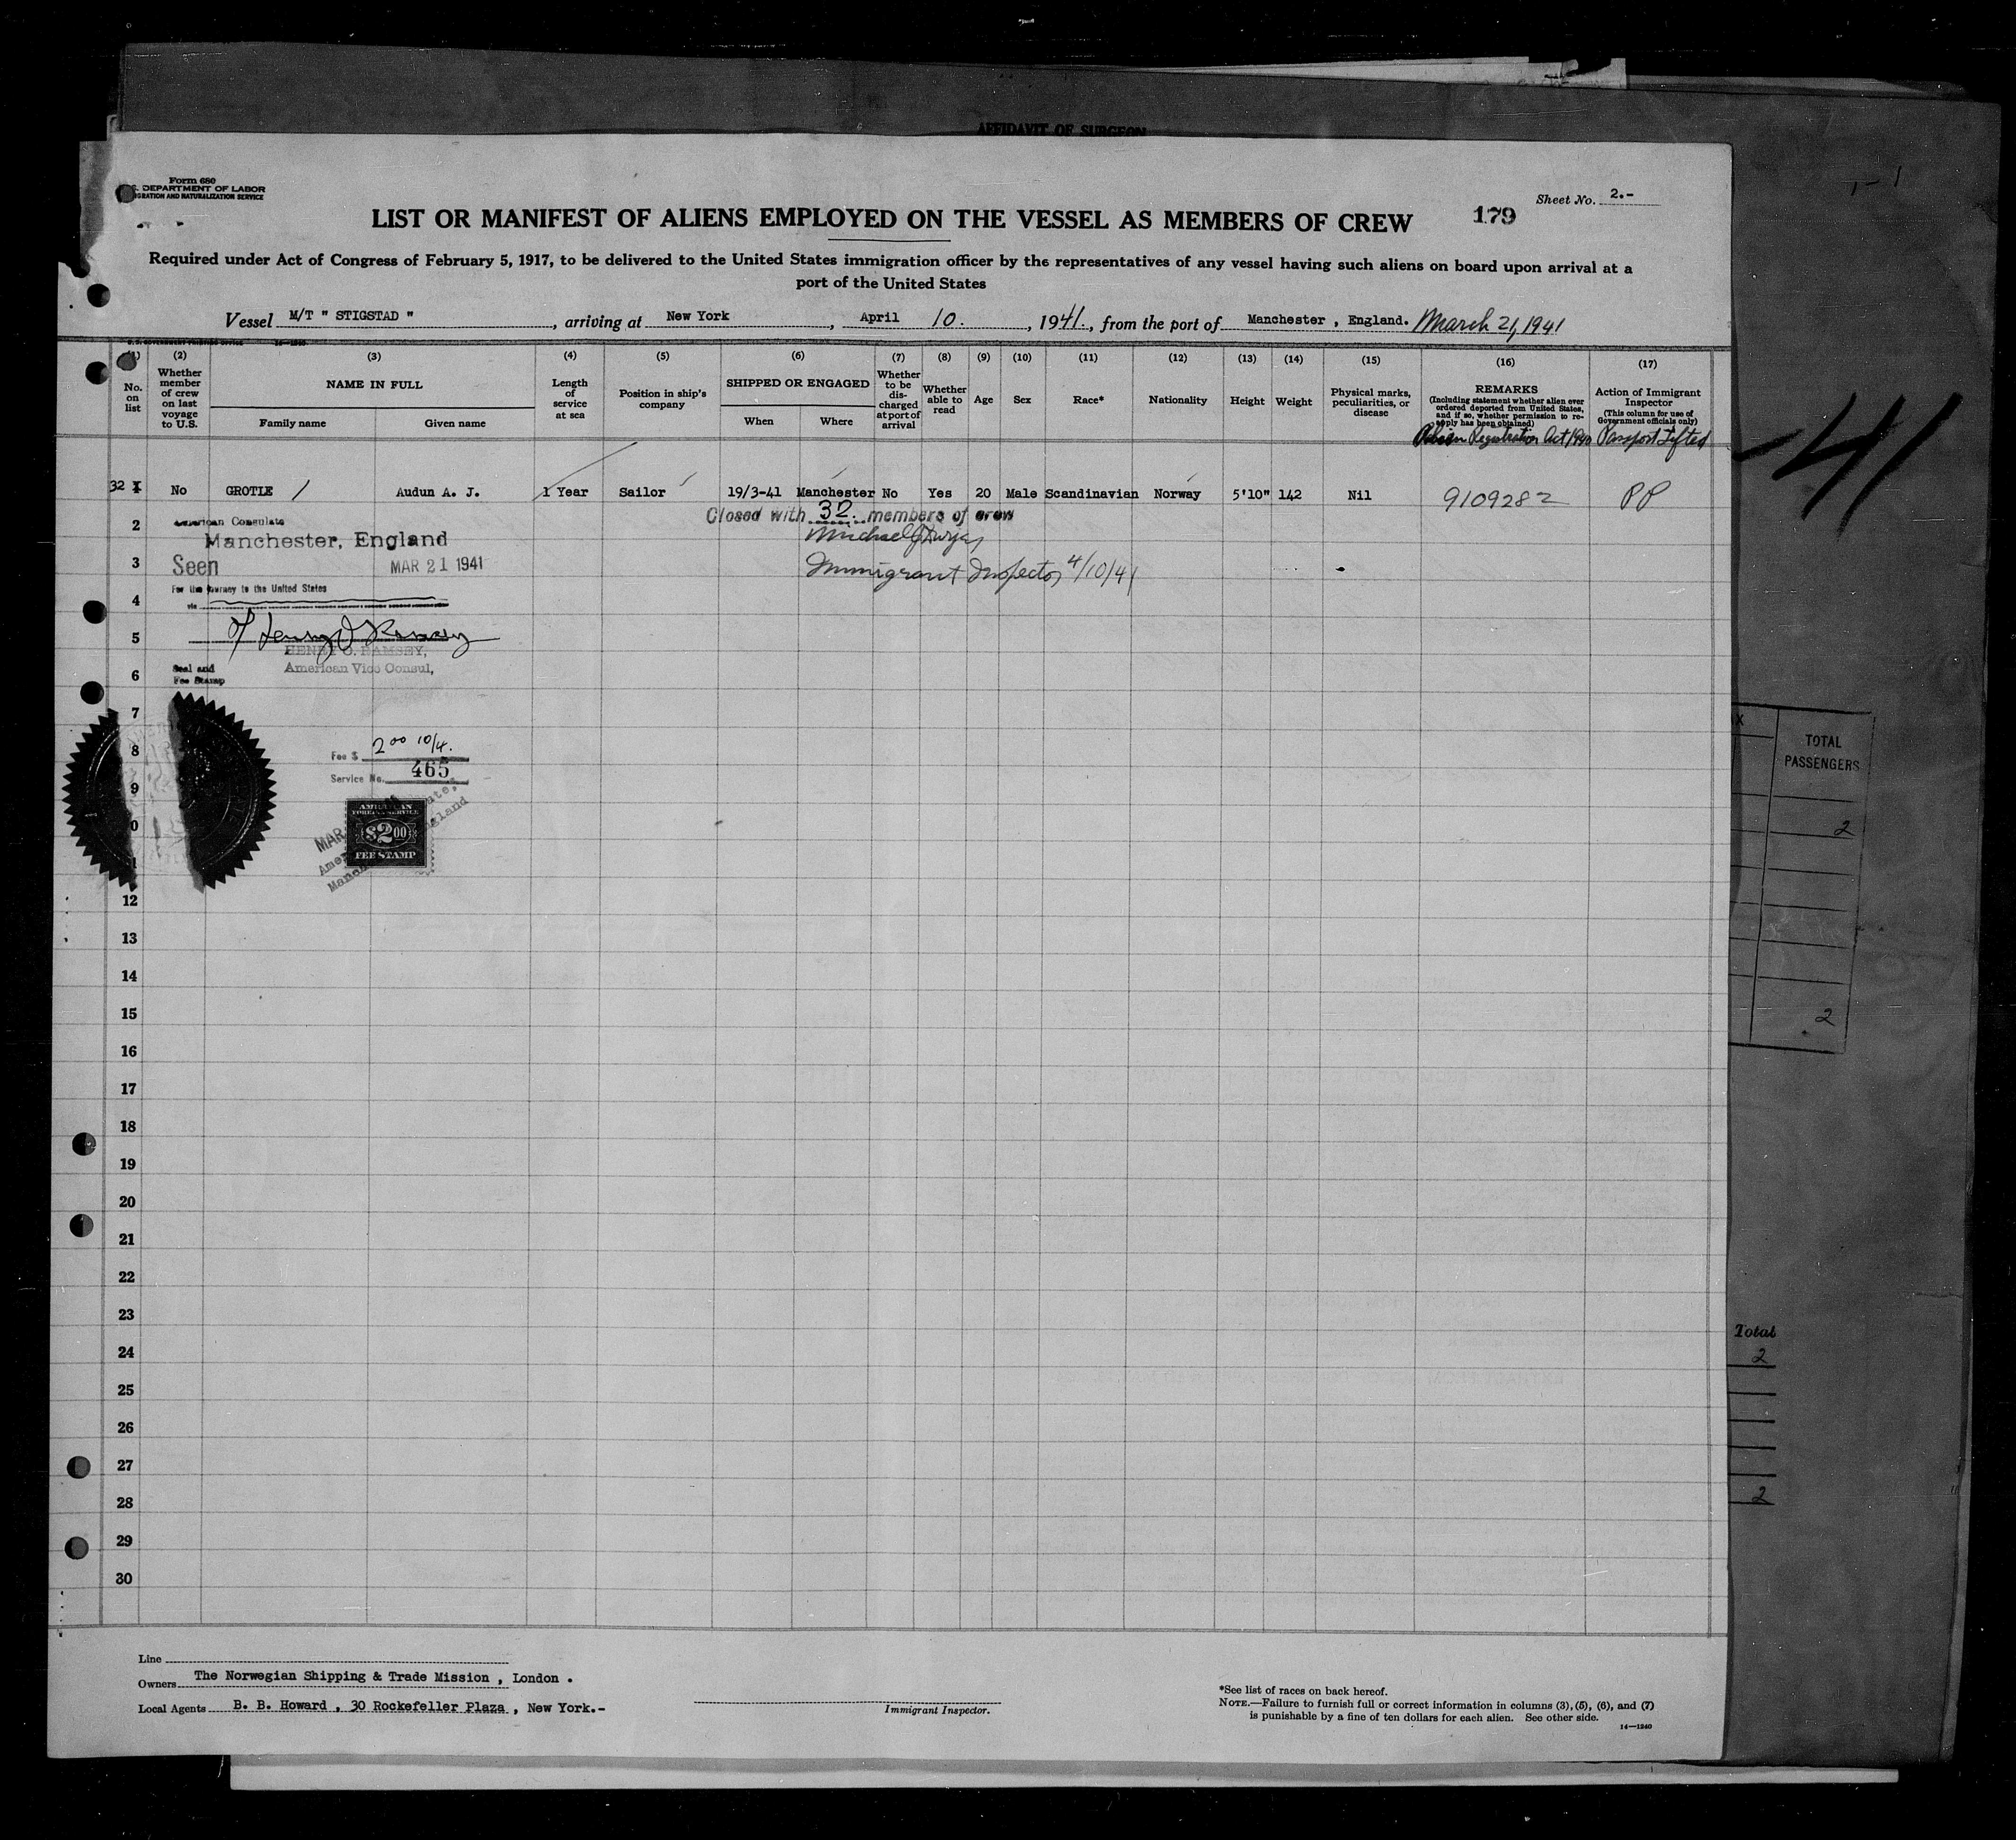 AFFIDAVIT OF SURGEON
Form 680
DEPARTMENT OF LABOR
GRATION AND NATURALIZATION SERVICE
Sheet No. 2.-
LIST OR MANIFEST OF ALIENS EMPLOYED ON THE VESSEL AS MEMBERS OF CREW
179
Required under Act of Congress of February 5, 1917, to be delivered to the United States immigration officer by the representatives of any vessel having such aliens on board upon arrival at a
port of the United States
Vessel M/T " STIGSTAD " , arriving at New York , April 10. , 1941. , from the port of Manchester , England. March 21, 1941
(1) No. on list
(2) Whether member of crew on last voyage to U.S.
(3) NAME IN FULL
Family name
Given name
(4) Length of service at sea
(5) Position in ship's company
(6) SHIPPED OR ENGAGED
When
Where
(7) Whether to be discharged at port of arrival
(8) Whether able to read
(9) Age
(10) Sex
(11) Race*
(12) Nationality
(13) Height
(14) Weight
(15) Physical marks, peculiarities, or disease
(16) REMARKS
(Including statement whether alien ever ordered deported from United States, and if so, whether permission to re-apply has been obtained)
Alien Registration Act 1940
(17) Action of Immigrant Inspector
(This column for use of Government officials only)
Passport Lifted
32 1 No GROTLE / Audun A. J. 1 Year Sailor 19/3-41 Manchester No Yes 20 Male Scandinavian Norway 5'10" 142 Nil 9109282 PP
Closed with 32. members of crew
Immigrant Inspector 4/10/41
2
American Consulate
Manchester, England
3
Seen MAR 21 1941
For the journey to the United States
4
via
5
Henry O. Ramsey
HENRY O. RAMSEY,
American Vice Consul,
6
Seal and
Fee Stamp
7
8
Fee $ 2 00 10/4.
Service No. 465
9
AMERICAN
FOREIGN SERVICE
$2.00
FEE STAMP
12
13
14
15
16
17
18
19
20
21
22
23
24
25
26
27
28
29
30
Line
Owners The Norwegian Shipping & Trade Mission , London .
Local Agents B. B. Howard , 30 Rockefeller Plaza , New York.-
Immigrant Inspector.
*See list of races on back hereof.
NOTE.—Failure to furnish full or correct information in columns (3), (5), (6), and (7)
is punishable by a fine of ten dollars for each alien. See other side.
14—1240
41
TOTAL
PASSENGERS
2
2
Total
2
2